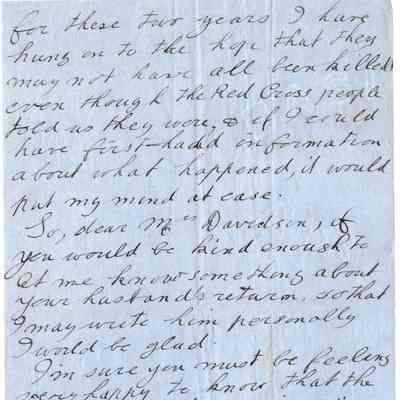 for these two years I have
hung on to the hope that they
may not have all been killed
even though the Red Cross people
told us they were, & if I could
have first-hand information
about what happened, it would
put my mind at ease.
So, dear Mrs Davidson, if
you would be kind enough to
let me know something about
your husband's return, so that
I may write him personally
I would be glad.
I'm sure you must be feeling
very happy to know that the